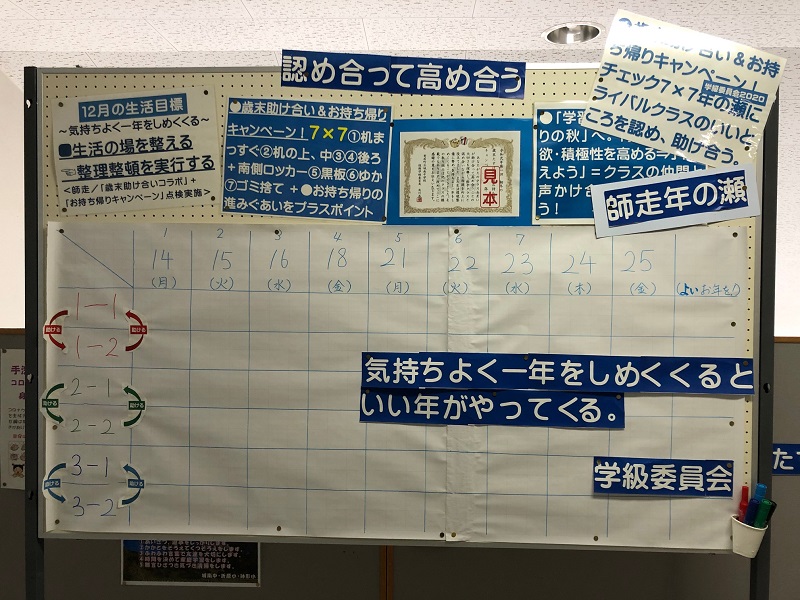 認め合って高め合う
12月の生活目標
~気持ちよく一年をしめくくる~
●生活の場を整える
☜整理整頓を実行する
<師走/「歳末助け合いコラボ」+
「お持ち帰りキャンペーン」点検実施>
●歳末助け合い&お持ち帰り
キャンペーン!7×7①机ま
っすぐ②机の上、中③④後ろ
+南側ロッカー⑤黒板⑥ゆか
⑦ゴミ捨て+●お持ち帰りの
進みぐあいをプラスポイント
見本
●「学習
りの秋」へ。
欲・積極性を高める=
えよう」=クラスの仲間
声かけ合
う!
い&お持
ち帰りキャンペーン!
学級委員会2020
チェック7×7年の瀬に
ライバルクラスのいいと
ころを認め、助け合う。
師走年の瀬
1 2 3 4 5 6 7
14 15 16 18 21 22 23 24 25
(月) (火) (水) (金) (月) (火) (水) (木) (金) (よいお年を)
1-1
助ける 助ける
1-2
2-1
助ける 助ける
2-2
3-1
助ける 助ける
3-2
気持ちよく一年をしめくくると
いい年がやってくる。
学級委員会
手洗
コロ